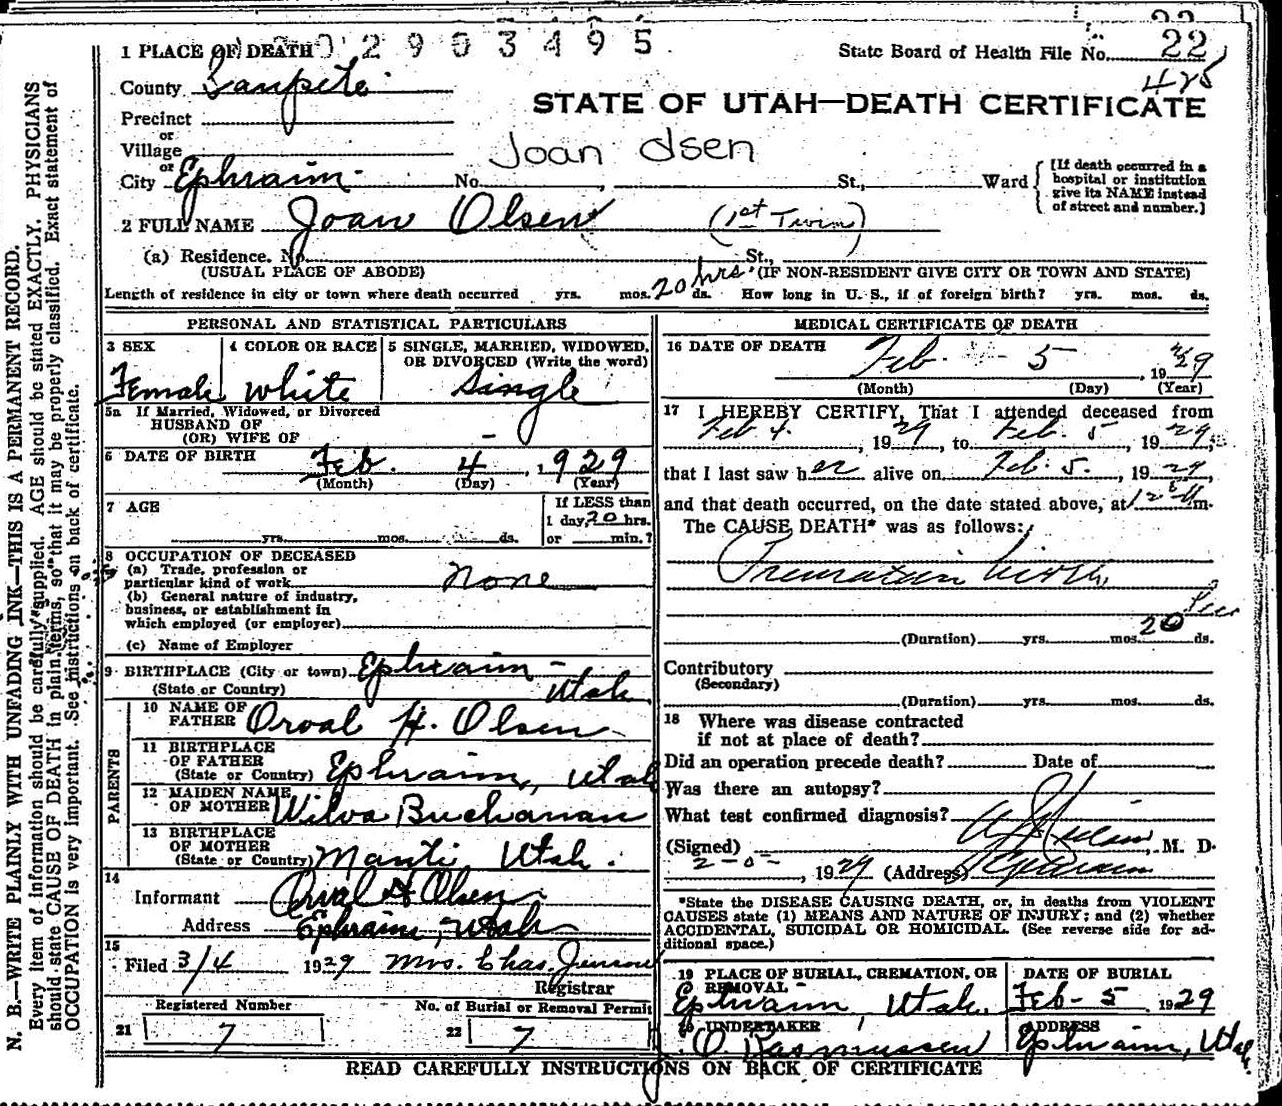 2 9 0 3 4 9 5
1 PLACE OF DEATH
State Board of Health File No. 22
425
County Sanpete
STATE OF UTAH—DEATH CERTIFICATE
Precinct
or
Village
Joan Olsen
or
City Ephraim No. , St., Ward
[If death occurred in a hospital or institution give its NAME instead of street and number.]
2 FULL NAME Joan Olsen (1st Twin)
(a) Residence. No. St.,
(USUAL PLACE OF ABODE) (IF NON-RESIDENT GIVE CITY OR TOWN AND STATE)
Length of residence in city or town where death occurred yrs. mos. 20 hrs. ds. How long in U. S., if of foreign birth? yrs. mos. ds.
PERSONAL AND STATISTICAL PARTICULARS
3 SEX Female
4 COLOR OR RACE White
5 SINGLE, MARRIED, WIDOWED, OR DIVORCED (Write the word) Single
5a If Married, Widowed, or Divorced
HUSBAND OF
(OR) WIFE OF –
6 DATE OF BIRTH Feb. 4, 1929
(Month) (Day) (Year)
7 AGE yrs. mos. ds.
If LESS than
1 day, 20 hrs.
or min.?
8 OCCUPATION OF DECEASED
(a) Trade, profession or
particular kind of work none
(b) General nature of industry,
business, or establishment in
which employed (or employer)
(c) Name of Employer
9 BIRTHPLACE (City or town) Ephraim –
(State or Country) Utah
PARENTS
10 NAME OF
FATHER Orval H. Olsen
11 BIRTHPLACE
OF FATHER
(State or Country) Ephraim, Utah
12 MAIDEN NAME
OF MOTHER Wilva Buchanan
13 BIRTHPLACE
OF MOTHER
(State or Country) Manti, Utah.
14
Informant Orval H Olsen
Address Ephraim, Utah
15
Filed 3/4 1929 Mrs. Chas. Jenson
Registrar
Registered Number No. of Burial or Removal Permit
21 7 22 7
MEDICAL CERTIFICATE OF DEATH
16 DATE OF DEATH Feb. 5, 1929
(Month) (Day) (Year)
17 I HEREBY CERTIFY, That I attended deceased from
Feb 4, 1929, to Feb. 5, 1929,
that I last saw her alive on Feb. 5, 1929,
and that death occurred, on the date stated above, at m.
The CAUSE DEATH* was as follows:
Premature birth
(Duration) yrs. mos. 20 ds.
Contributory
(Secondary)
(Duration) yrs. mos. ds.
18 Where was disease contracted
if not at place of death?
Did an operation precede death? Date of
Was there an autopsy?
What test confirmed diagnosis?
(Signed) , M. D.
2-5-, 1929 (Address) Ephraim
*State the DISEASE CAUSING DEATH, or, in deaths from VIOLENT
CAUSES state (1) MEANS AND NATURE OF INJURY; and (2) whether
ACCIDENTAL, SUICIDAL OR HOMICIDAL. (See reverse side for ad-
ditional space.)
19 PLACE OF BURIAL, CREMATION, OR REMOVAL – Ephraim, Utah.
DATE OF BURIAL Feb - 5 1929
UNDERTAKER O. Rasmussen
ADDRESS Ephraim, Utah.
READ CAREFULLY INSTRUCTIONS ON BACK OF CERTIFICATE
N. B.—WRITE PLAINLY WITH UNFADING INK—THIS IS A PERMANENT RECORD.
Every item of information should be carefully supplied. AGE should be stated EXACTLY. PHYSICIANS
should state CAUSE OF DEATH in plain terms, so that it may be properly classified. Exact statement of
OCCUPATION is very important. See instructions on back of certificate.